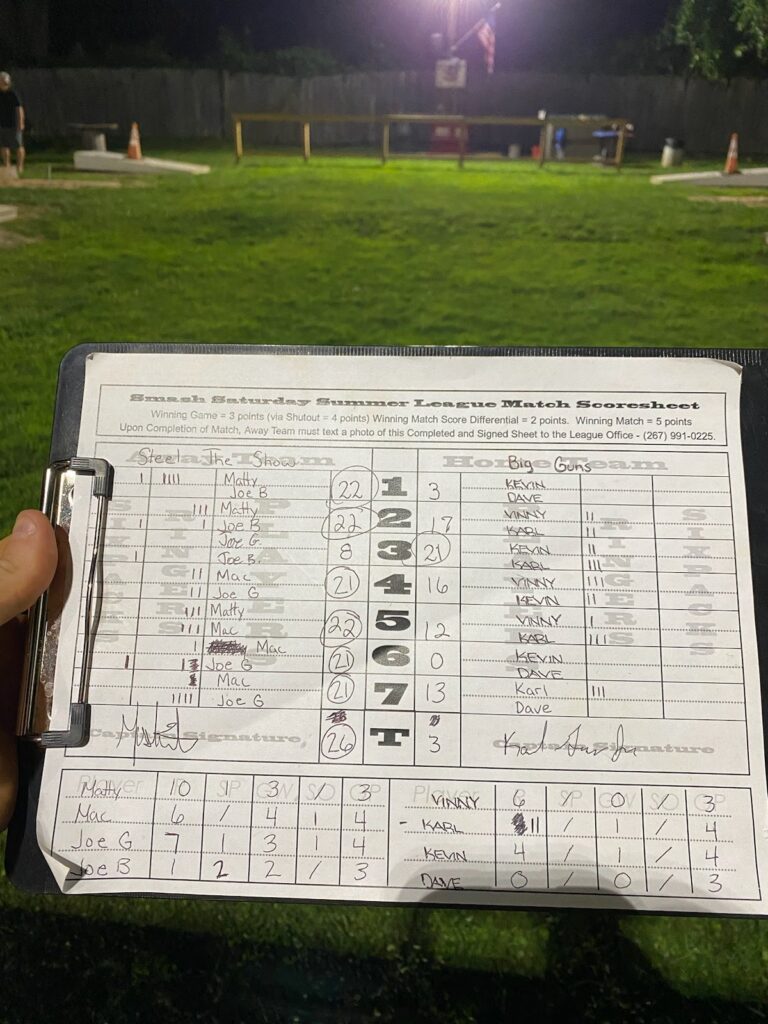 Smash Saturday Summer League Match Scoresheet
Winning Game = 3 points (via Shutout = 4 points) Winning Match Score Differential = 2 points. Winning Match = 5 points
Upon Completion of Match, Away Team must text a photo of this Completed and Signed Sheet to the League Office - (267) 991-0225.
Away Team Steel The Show Home Team Big Guns
SIXPACKS RINGERS PLAYERS RINGERS SIXPACKS
I IIII Matty 22 1 3 KEVIN
Joe B DAVE
III Matty 22 2 17 VINNY II
I I Joe B KARL II
Joe G 8 3 21 KEVIN II
I Joe B. KARL III
II Mac 21 4 16 VINNY III
II Joe G KEVIN II
III Matty 22 5 12 VINNY I
III Mac KARL III
I Mac 21 6 0 KEVIN
I Joe G DAVE
Mac 21 7 13 Karl III
IIII Joe G Dave
Captain Signature 26 T 3 Captain Signature
Player R S/P GW S/O GP Player R S/P GW S/O GP
Matty 10 1 3 / 3 VINNY 6 / 0 / 3
Mac 6 / 4 1 4 - KARL 11 / 1 / 4
Joe G 7 1 3 1 4 KEVIN 4 / 1 / 4
Joe B 1 2 2 / 3 DAVE 0 / 0 / 3